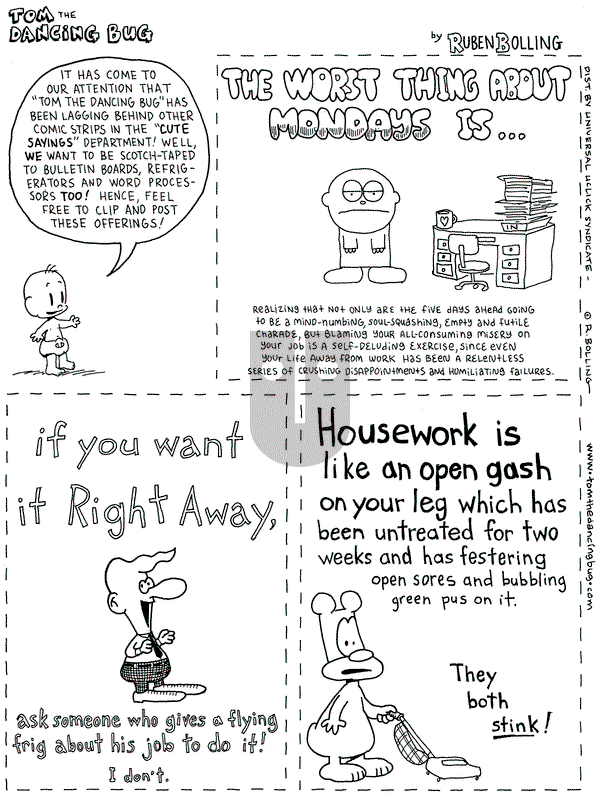 TOM THE
DANCING BUG
by RUBEN BOLLING
IT HAS COME TO
OUR ATTENTION THAT
"TOM THE DANCING BUG" HAS
BEEN LAGGING BEHIND OTHER
COMIC STRIPS IN THE "CUTE
SAYINGS" DEPARTMENT! WELL,
WE WANT TO BE SCOTCH-TAPED
TO BULLETIN BOARDS, REFRIG-
ERATORS AND WORD PROCES-
SORS TOO! HENCE, FEEL
FREE TO CLIP AND POST
THESE OFFERINGS!
THE WORST THING ABOUT
MONDAYS IS...
IN
REALIZING THAT NOT ONLY ARE THE FIVE DAYS AHEAD GOING
TO BE A MIND-NUMBING, SOUL-SQUASHING, EMPTY AND FUTILE
CHARADE, BUT BLAMING YOUR ALL-CONSUMING MISERY ON
YOUR JOB IS A SELF-DELUDING EXERCISE, SINCE EVEN
YOUR LIFE AWAY FROM WORK HAS BEEN A RELENTLESS
SERIES OF CRUSHING DISAPPOINTMENTS AND HUMILIATING FAILURES.
DIST. BY UNIVERSAL UCLICK SYNDICATE - © R. BOLLING - www.tomthedancingbug.com
if you want
it Right Away,
ask someone who gives a flying
frig about his job to do it!
I don't.
Housework is
like an open gash
on your leg which has
been untreated for two
weeks and has festering
open sores and bubbling
green pus on it.
They
both
stink!